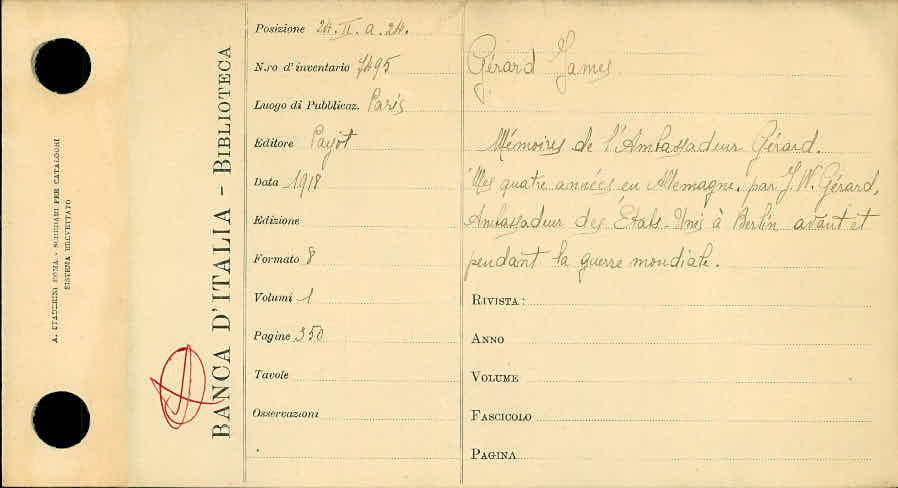 A. STADERINI ROMA - SCHEDARI PER CATALOGHI
SISTEMA BREVETTATO
BANCA D'ITALIA - BIBLIOTECA
Posizione 24. II. a. 24.
N.ro d'inventario 7495
Luogo di Pubblicaz. Paris
Editore Payot
Data 1918
Edizione
Formato 8
Volumi 1
Pagine 350
Tavole
Osservazioni
Gérard James
Mémoires de l'Ambassadeur Gérard.
Mes quatre années en Allemagne, par J. W. Gérard,
Ambassadeur des États-Unis à Berlin avant et
pendant la guerre mondiale.
RIVISTA:
ANNO
VOLUME
FASCICOLO
PAGINA